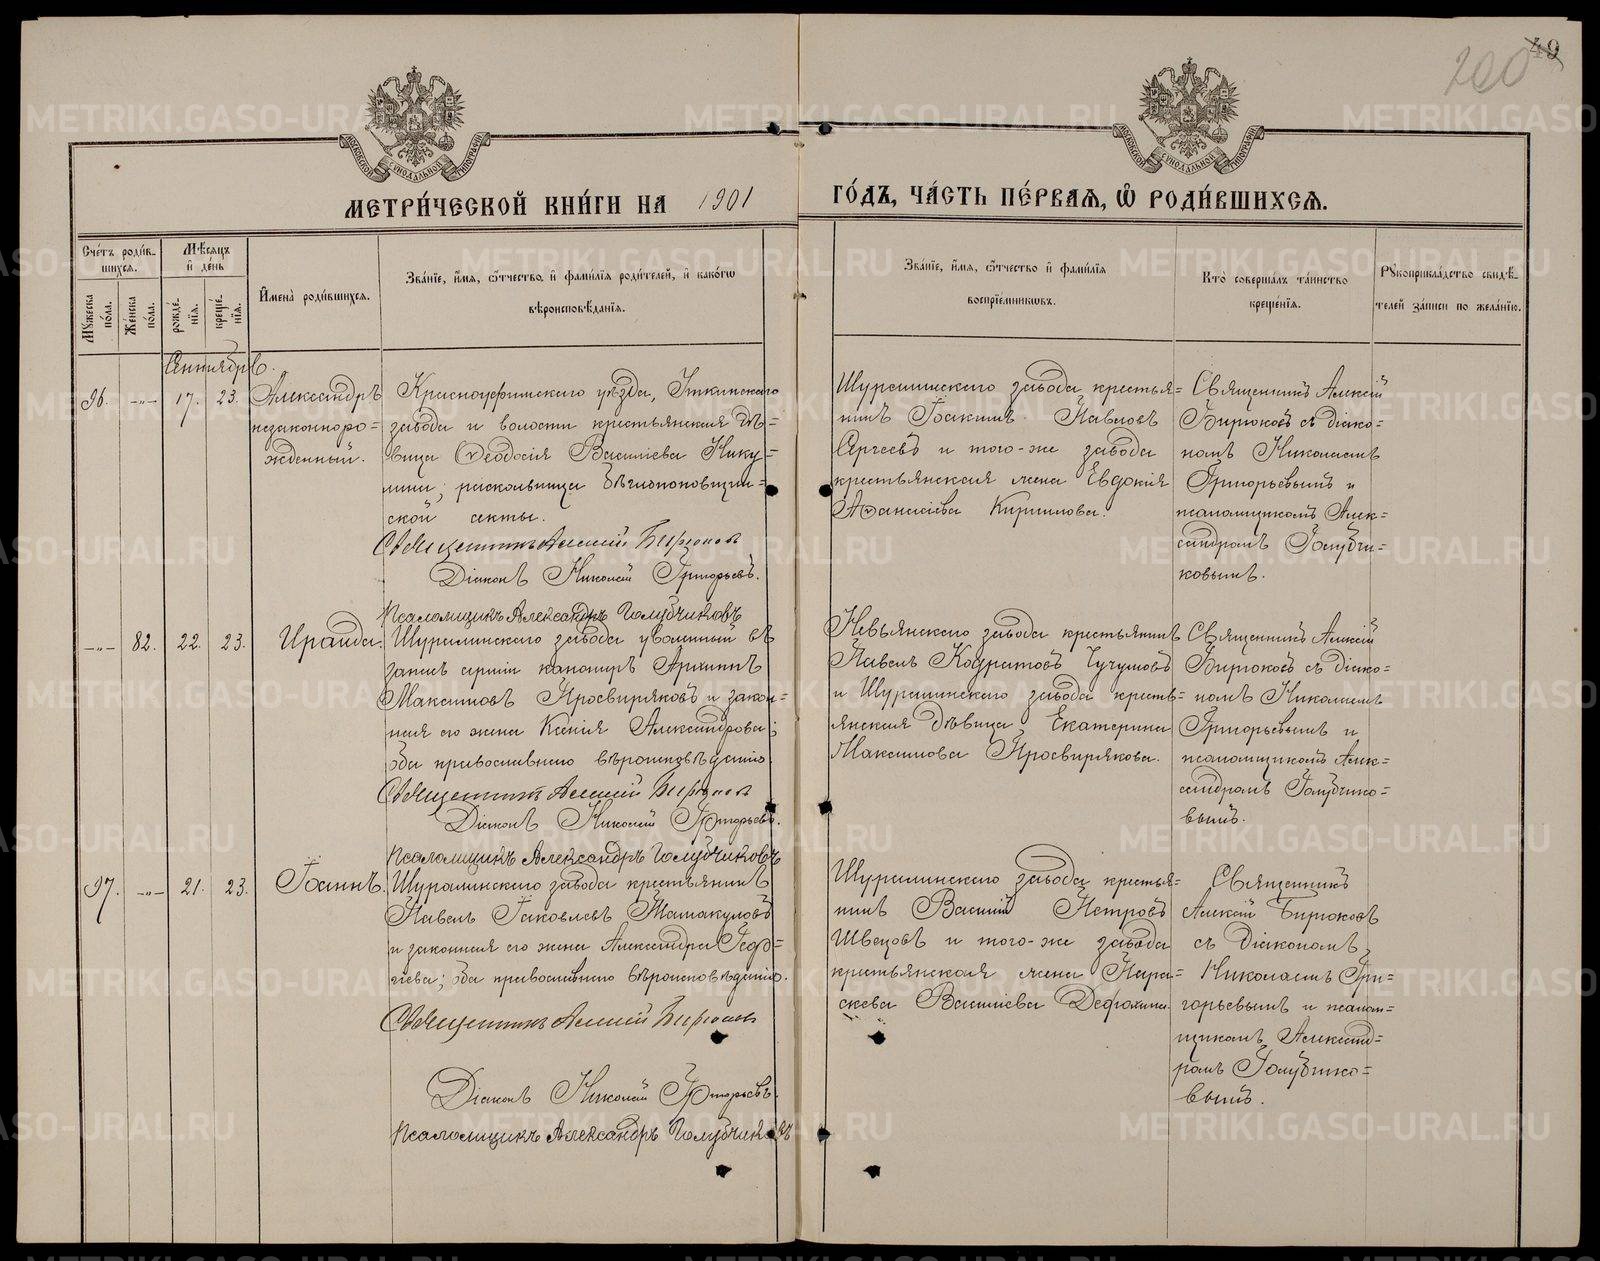 200
49
МОСКОВСКОЙ СѴНОДАЛЬНОЙ ТИПОГРАФІИ
МОСКОВСКОЙ СѴНОДАЛЬНОЙ ТИПОГРАФІИ
МЕТРИ́ЧЕСКОЙ КНИ́ГИ НА 1901
ГО́ДЪ, ЧА́СТЬ ПЕ́РВАѦ, Ѡ҆ РОДИ́ВШИХСѦ.
Сче́тъ роди́в-
шихся.
Мꙋ́жеска по́ла.
Же́нска по́ла.
Мѣ́сяцъ и҆ день
рожде́нїя.
креще́нїя.
И҆мена̀ роди́вшихся.
Зва́нїе, и҆́мя, ѻ҆́тчество, и҆ фами́лїя роди́телей, и҆ како́гѡ
вѣроисповѣ́данїя.
Зва́нїе, и҆́мя, ѻ҆́тчество и҆ фами́лїя
воспрїе́мникѡвъ.
Кто̀ соверша́лъ та́инство
креще́нїя.
Рꙋкоприкла́дство свидѣ́-
телей за́писи по жела́нїю.
Сентябрь.
96. -„- 17. 23.
Александръ
незаконноро-
жденный.
Красноуфимскаго уѣзда, Уткинскаго
завода и волости крестьянская дѣ-
вица Ѳеодосія Васильева Нику-
лина, раскольница бѣглопоповщин-
ской секты.
Священникъ Алексій Бирюковъ
Діаконъ Николай Григорьевъ.
Псаломщикъ Александръ Голубчиковъ
Шуралинскаго завода крестья-
нинъ Іоакимъ Павловъ
Сергеевъ и того-же завода
крестьянская жена Евдокія
Аѳанасіева Кириллова.
Священникъ Алексій
Бирюковъ съ діако-
номъ Николаемъ
Григорьевымъ и
псаломщикомъ Алек-
сандромъ Голубчи-
ковымъ.
-„- 82. 22. 23.
Ираида.
Шуралинскаго завода уволенный въ
запасъ арміи канониръ Архиппъ
Максимовъ Просвиряковъ и закон-
ная его жена Ксенія Александрова;
оба православнаго вѣроисповѣданія.
Священникъ Алексій Бирюковъ
Діаконъ Николай Григорьевъ.
Псаломщикъ Александръ Голубчиковъ
Невьянскаго завода крестьянинъ
Павелъ Кодратовъ Чучумовъ
и Шуралинскаго завода кресть-
янская дѣвица Екатерина
Максимова Просвирякова.
Священникъ Алексій
Бирюковъ съ діако-
номъ Николаемъ
Григорьевымъ и
псаломщикомъ Алек-
сандромъ Голубчико-
вымъ.
97. -„- 21. 23.
Іоаннъ.
Шуралинскаго завода крестьянинъ
Павелъ Іаковлевъ
и законная его жена Александра Геор-
гіева; оба православнаго вѣроисповѣданія.
Священникъ Алексій Бирюковъ
Діаконъ Николай Григорьевъ.
Псаломщикъ Александръ Голубчиковъ
Шуралинскаго завода крестья-
нинъ Василій Петровъ
Швецовъ и того-же завода
крестьянская жена Пара-
скева Васильева
Священникъ
Алексій Бирюковъ
съ діакономъ
Николаемъ Гри-
горьевымъ и псалом-
щикомъ Александ-
ромъ Голубчико-
вымъ.
METRIKI.GASO-URAL.RU